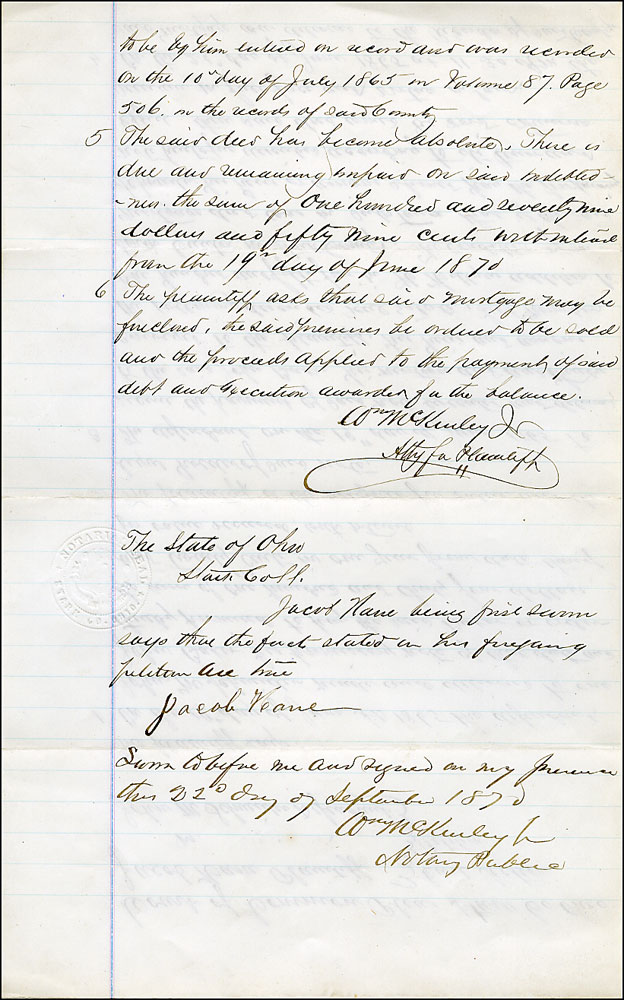 to be by him entered on record and was recorded
on the 10th day of July 1865 in Volume 87. Page
506. in the records of said County
5 The said deed has become absolute. There is
due and remaining unpaid on said indebted-
-ness. the sum of One hundred and seventy nine
dollars and fifty nine cents with interest
from the 19th day of June 1870
6 The plaintiff asks that said mortgage may be
foreclosed, the said premises be ordered to be sold
and the proceeds applied to the payment of said
debt and execution awarded for the balance.
Wm McKinley Jr
Atty for Plaintiff
The State of Ohio
Stark Co SS.
Jacob Kane being first sworn
says that the facts stated in his foregoing
petition are true
Jacob Kane
Sworn to before me and signed in my presence
this 22d day of September 1870
Wm McKinley Jr
Notary Public
NOTARIAL SEAL
STARK CO. OHIO